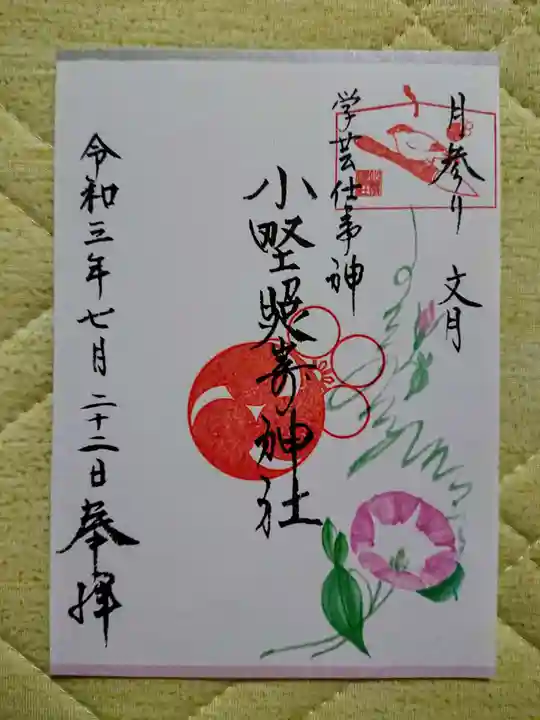 月参り 文月
学芸仕事神
小野照崎神社
令和三年七月二十二日奉拝